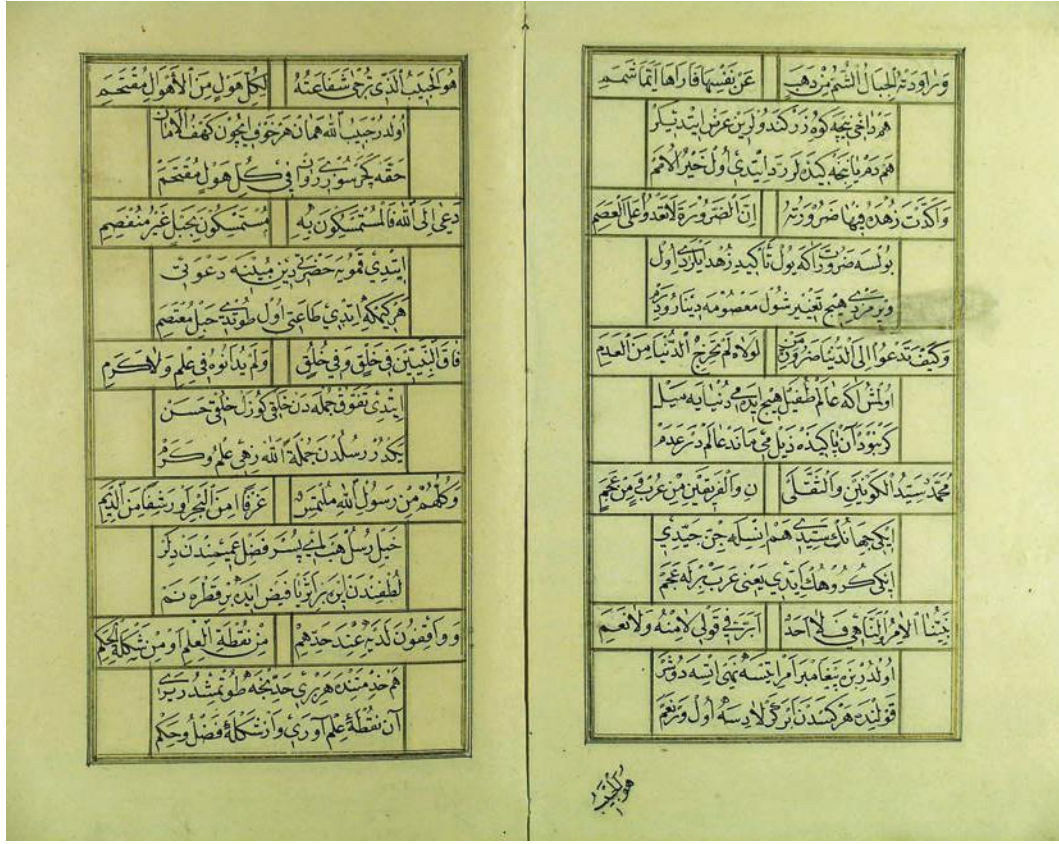 وَرَاوَدَتْهُ الْجِبَالُ الشُّمُّ مِنْ ذَهَبٍ عَنْ نَفْسِهَا فَارَاهَا اَيَّمَا شَمَمِ
هم داخی نیجه کوه زر کندولرین عرض ایتدیلر
وَاَكَّدَتْ زُهْدَهُ فِيهَا ضَرُورَتُهُ اِنَّ الضَّرُورَةَ لَا تَعْدُوا عَلَى الْعِصَمِ
بولسه ضرورت اکه بول تأکید زهد ایلردی اول
ویرمزدی هیچ تغییر شول معصومه دینار و درم
وَكَيْفَ تَدْعُوا اِلَى الدُّنْيَا ضَرُورَةُ مَنْ لَوْلَاهُ لَمْ تَخْرُجِ الدُّنْيَا مِنَ الْعَدَمِ
اولمش اکه عالم طفیل هیچ ایده می دنیایه میل
کر نبود آن پاکیده ذیل می ماند عالم در عدم
مُحَمَّدٌ سَيِّدُ الْكَوْنَيْنِ وَالثَّقَلَيْ نِ وَالْفَرِيقَيْنِ مِنْ عُرْبٍ وَمِنْ عَجَمِ
ایکی جهانك سیدی هم انسله جن جیدی
ایکی کروهك ایدی یعنی عرب برله عجم
نَبِيُّنَا الْاٰمِرُ النَّاهِي فَلَا اَحَدٌ اَبَرَّ فِي قَوْلِ لَا مِنْهُ وَلَا نَعَمِ
اولدر بزن پیغامبر امر ایتسه نهی ایتسه دوشر
قولنده هرکسدن ابر کر لا دسه اول کر نعم
هو الحبیب
هُوَ الْحَبِيبُ الَّذِي تُرْجٰى شَفَاعَتُهُ لِكُلِّ هَوْلٍ مِنَ الْاَهْوَالِ مُقْتَحَمِ
اولدر حبیب الله همان هر خوف ایچون کهف الامان
فی کل هول مقتحم
دَعٰى اِلَى اللّٰهِ فَالْمُسْتَمْسِكُونَ بِهِ مُسْتَمْسِكُونَ بِحَبْلٍ غَيْرِ مُنْفَصِمِ
ایتدی قمویه حضرتی دین مبینه دعوتی
هر کمکه ایتدی طاعتی اول طوتدی حبل معتصم
فَاقَ النَّبِيِّينَ فِي خَلْقٍ وَفِي خُلُقٍ وَلَمْ يُدَانُوهُ فِي عِلْمٍ وَلَا كَرَمِ
ایتدی تفوق جمله دن خلقی کوزل خلقی حسن
یکدر رسلدن جملة الله زهی علم و کرم
وَكُلُّهُمْ مِنْ رَسُولِ اللّٰهِ مُلْتَمِسٌ غَرْفًا مِنَ الْبَحْرِ اَوْ رَشْفًا مِنَ الدِّيَمِ
خیل رسل فضل عمیمندن دکر
لطفندن فیض ایده بر قطره نم
وَوَاقِفُونَ لَدَيْهِ عِنْدَ حَدِّهِمِ مِنْ نُقْطَةِ الْعِلْمِ اَوْ مِنْ شَكْلَةِ الْحِكَمِ
هم خدمتنده هر بری حدنجه طوتمشدر یری
آن نقطۀ علم آوری و از شکلۀ فضل و حکم